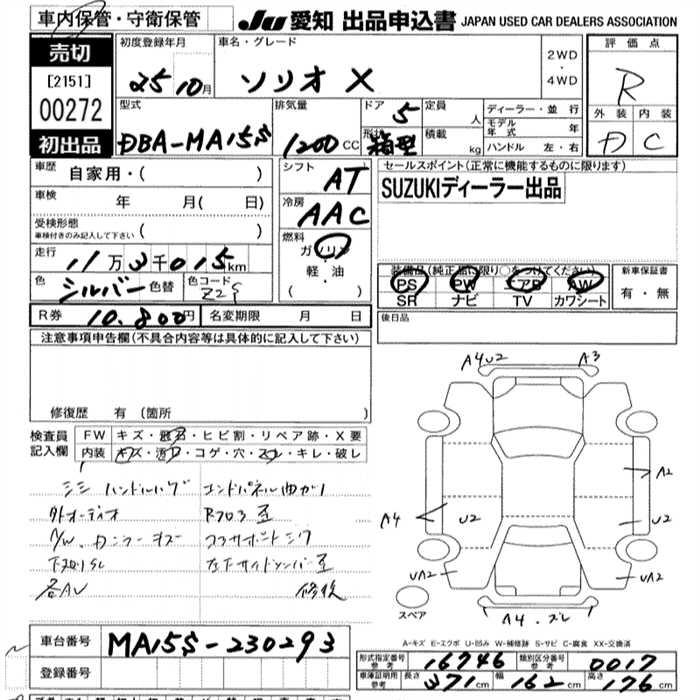 車内保管・守衛保管
JU 愛知 出品申込書 JAPAN USED CAR DEALERS ASSOCIATION
売切
[2151]
00272
初出品
初度登録年月
25 10月
車名・グレード
ソリオ X
2WD
・
4WD
評価点
R
外装 内装
D C
型式
DBA-MA15S
排気量
1200 CC
ドア 5
形状 箱型
定員 人
積載 kg
ディーラー・並行
モデル年式 年
ハンドル 左・右
車歴 自家用・( )
車検 年 月( 日)
受検形態
車検付きのみ記入して下さい ( )
走行 11万3千015km
色 シルバー 色替 色コード Z2S
シフト AT
冷房 AAC
燃料
ガソリン
軽・油
( ・ )
セールスポイント(正常に機能するものに限ります)
SUZUKIディーラー出品
装備品(純正品に限り○をつけてください)
PS PW エアB AW
SR ナビ TV カワシート
新車保証書
有・無
R券 10,800円 名変期限 月 日
後日品
注意事項申告欄(不具合内容等は具体的に記入して下さい)
修復歴 有(箇所
検査員記入欄
FW キズ・飛石・ヒビ割・リペア跡・X要
内装 キズ・汚れ・コゲ・穴・スレ・キレ・破レ
ハンドルハゲ エンドパネル曲がり
外オーディオ
下廻りSL
各AU 修復
A4U2 A3
A2
A4 U2 U2
UA2 UA2
A4・スレ
スペア
A-キズ E-エクボ U-凹み W-補修跡 S-サビ C-腐食 XX-交換済
車台番号 MA15S-230293
登録番号
形式指定番号 参考 16746 類別区分番号 参考 0017
車庫証明用 参考 長さ 371cm 幅 162cm 高さ 176cm